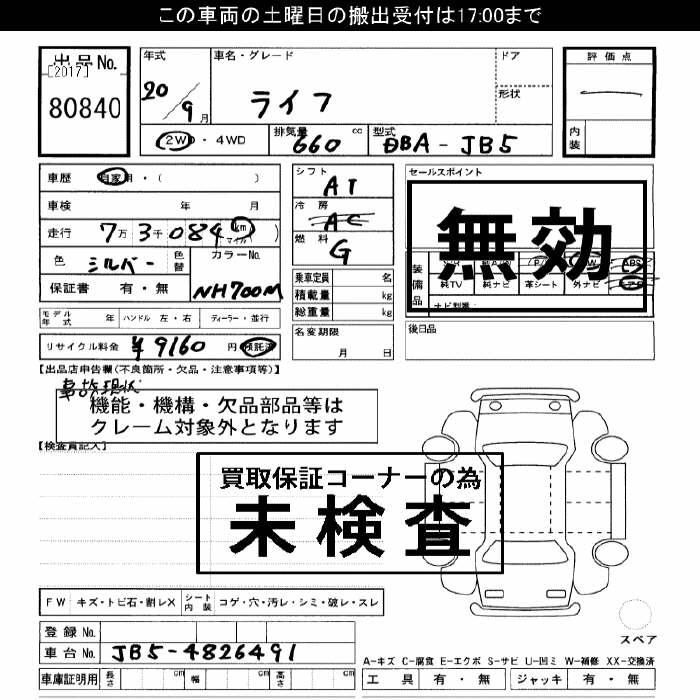 この車両の土曜日の搬出受付は17:00まで
出品No.
[2017]
80840
年式
20/9月
車名・グレード
ライフ
ドア
形状
評価点
内装
2WD・4WD
排気量
660 cc
型式
DBA-JB5
車歴 自家用・( )
車検 年 月
走行 7万3千084 km マイル
色 シルバー 色替
カラーNo.
NH700M
保証書 有・無
シフト
AT
冷房
AC
燃料
G
乗車定員 名
積載量 kg
総重量 kg
セールスポイント
無効
装備品
純TV 純ナビ 革シート 外ナビ エアB
ナビ型番:
モデル年式 年 ハンドル 左・右 ディーラー・並行
名変期限
月 日
後日品
リサイクル料金 ¥9160円 預託済
【出品店申告欄(不良箇所・欠品・注意事項等)】
事故現状
機能・機構・欠品部品等は
クレーム対象外となります
【検査員記入】
買取保証コーナーの為
未検査
FW キズ・トビ石・割レX シート内装 コゲ・穴・汚レ・シミ・破レ・スレ
スペア
登録No.
車台No. JB5-4826491
A-キズ C-腐食 E-エクボ S-サビ U-凹ミ W-補修 XX-交換済
車庫証明用 長さ cm 幅 cm 高さ cm
工具 有・無 ジャッキ 有・無